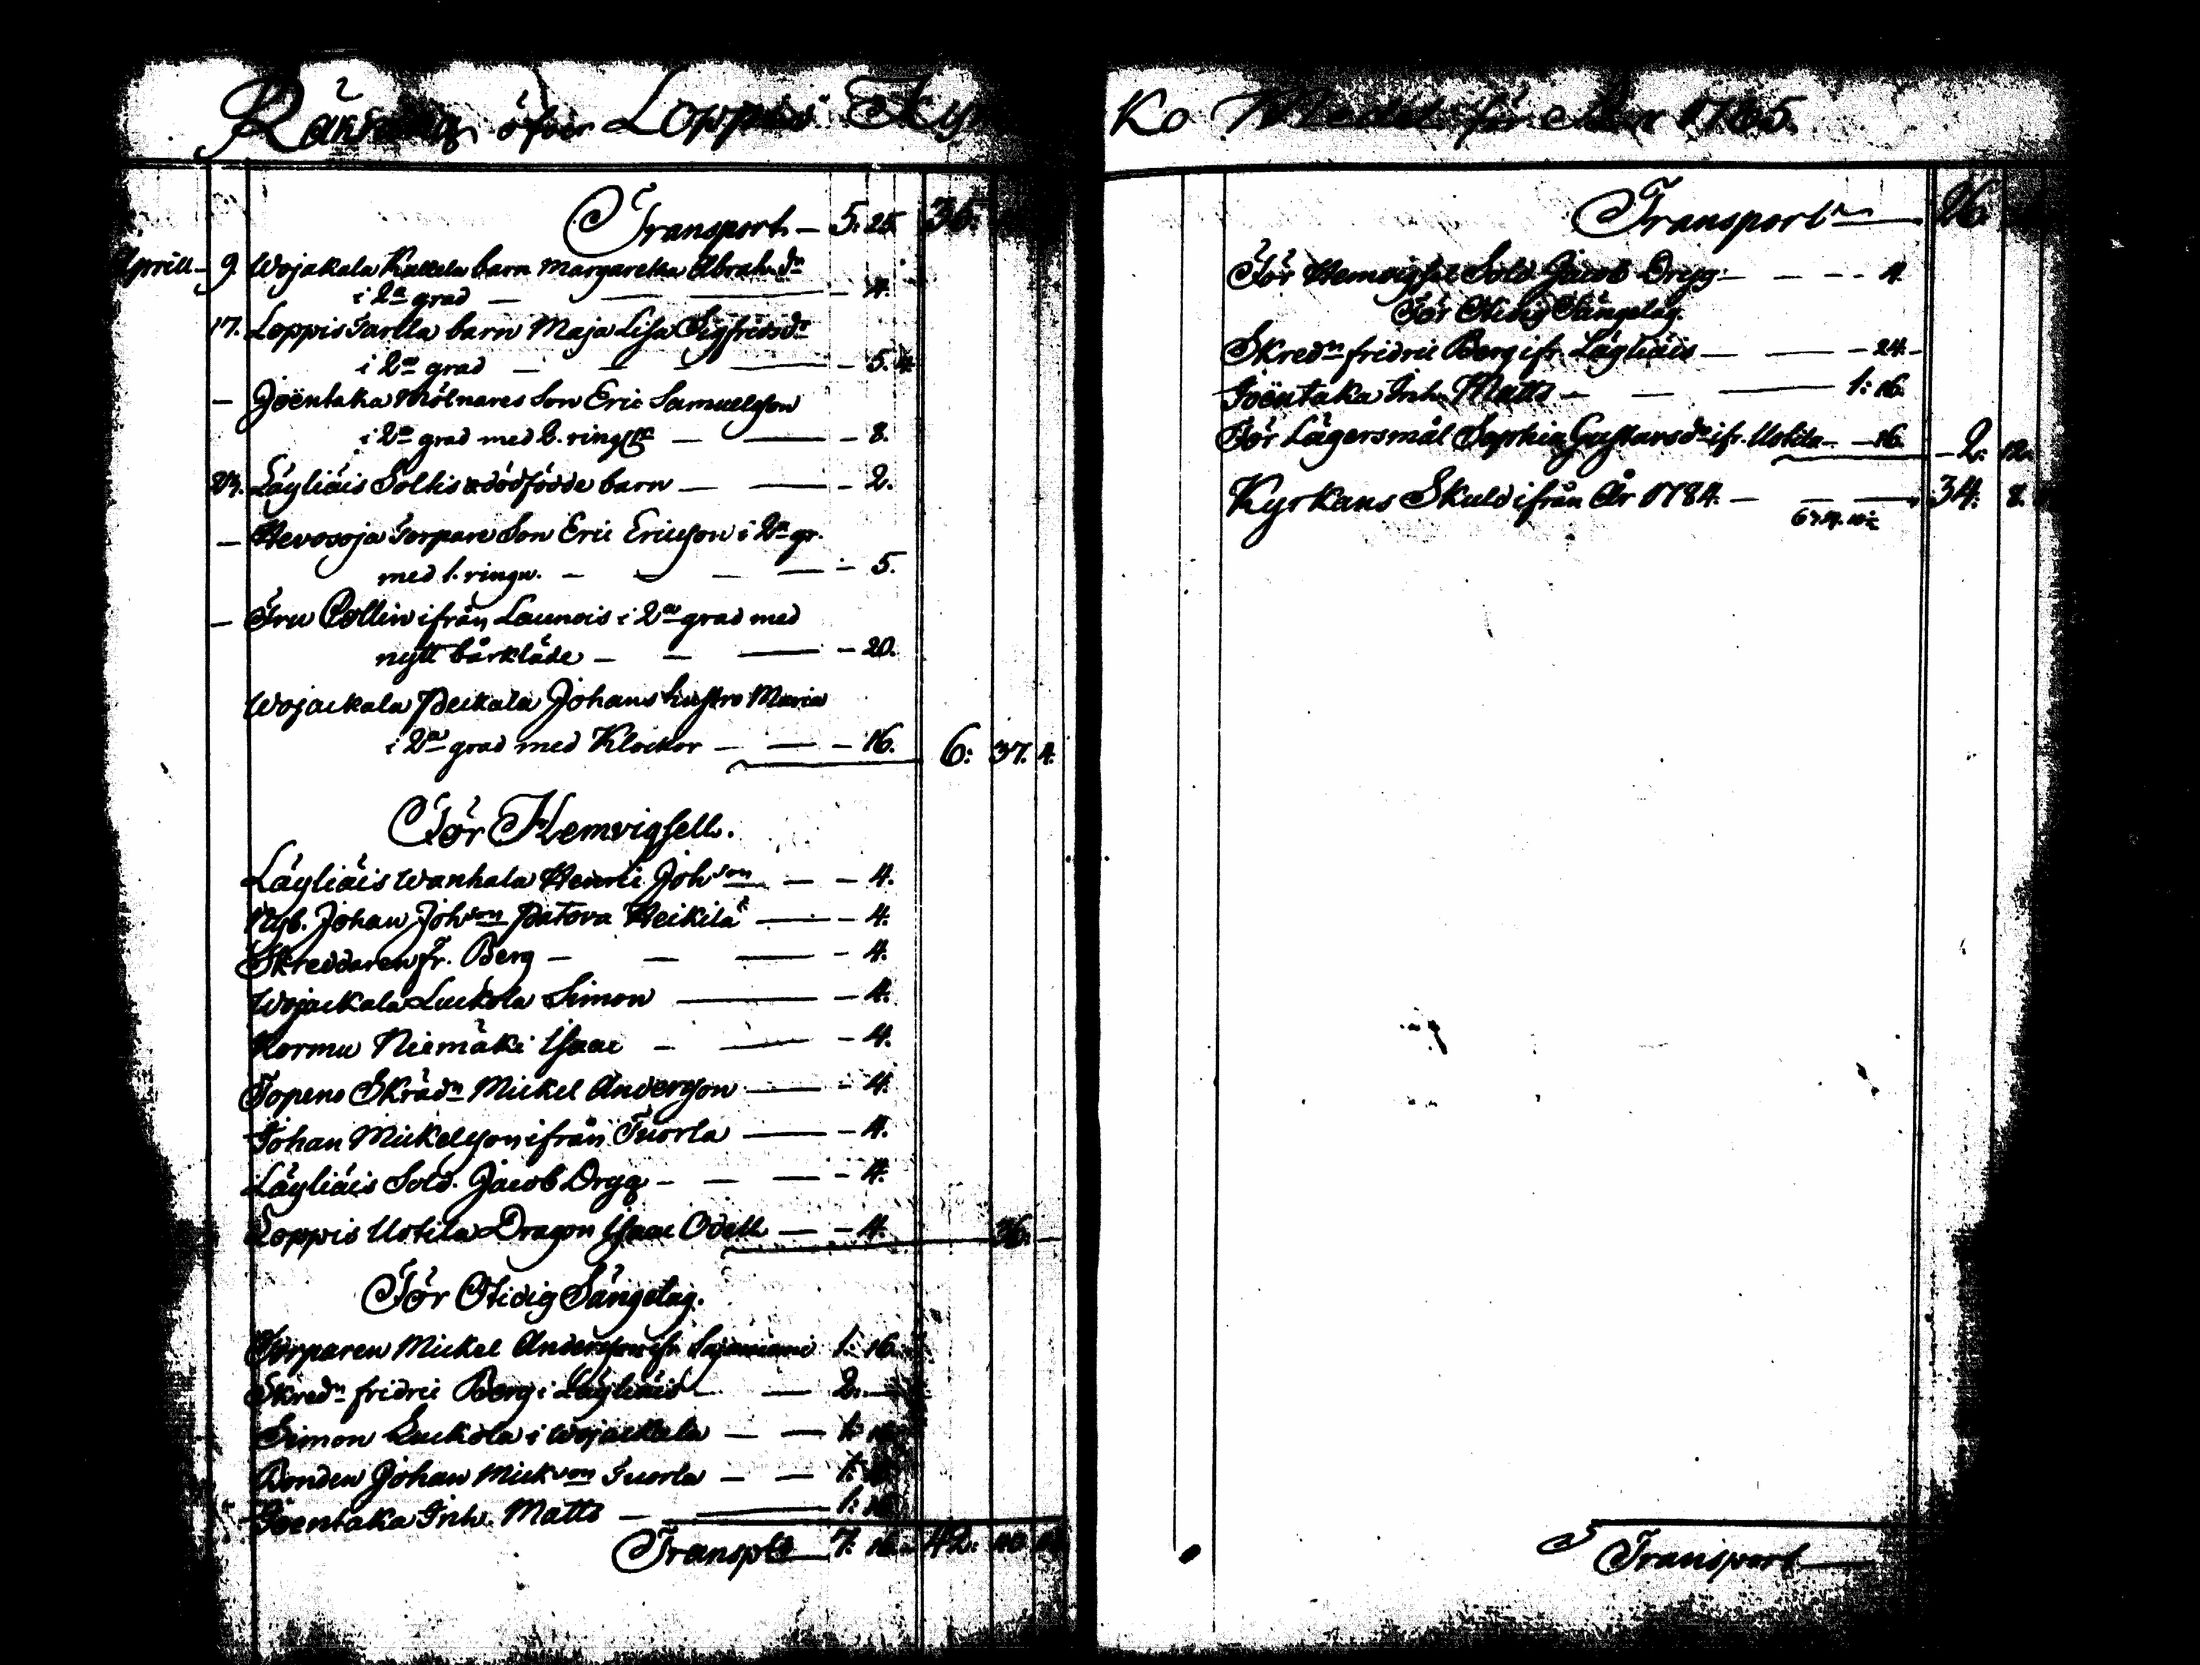 Räkning öfver Loppis Kyr
Transport — 5: 25. 35:
Aprill — 9. Wojakala Kallela barn Margaretha Abrah. dr
i 2a grad — — — 4.
17. Loppis Tartla barn Maja Lisa Sigfridsdr
i 2a grad — — — 5. 4.
— Joëntaka Mölnares Son Eric Samuelsson
i 2a grad med 2. ring — — 8.
24. Läyliäis Soltis dödfödde barn — — 2.
— Hevosoja Torpare Son Eric Ericsson i 2a gr.
med 1. ringn. — — — 5.
— Fru Collin ifrån Launois i 2a grad med
nytt bårkläde — — — 20.
Wojackala Peckala Johans hustro Maria
i 2a grad med Klockor — — 16. 6: 37. 4.
För Hemvigsell.
Läyliäis Wanhala Henric Johson — — 4.
Nyb. Johan Johson Patova Heikilä — — 4.
Skreddaren Fr. Berg — — — 4.
Wojackala Luckola Simon — — 4.
Kormu Niemäki Isaac — — 4.
Topeno Skrädn Mickel Andersson — — 4.
Johan Mickelsson ifrån Tuorla — — 4.
Läyliäis Sold. Jacob Dryg — — — 4.
Loppis Uotila Dragon Isaac Odell — — 4. 36.
För Otidig Sängelag.
Torparen Mickel Andersson ifr. Sajaniemi 1: 16.
Skredn fridric Berg i Läyliäis — — 2. —
Simon Luckola i Wojackala — — 1: 16
Bonden Johan Mickson Tuorla — — 1: 16
Joentaka Inh. Matts — — 1: 16
Transpt — 7: 16 — 42:
Ko Medel för År 1785.
Transport —
För Hemvigsel Sold. Jacob Dryg — — — 4.
För Otidig Sängelag.
Skredn fridric Berg ifr. Läyliäis — — 24. —
Joëntaka Inh. Matts — — — 1: 16.
För Lägersmål Sophia Gustavsdr ifr. Uotila — 16. — 2: 12.
Kyrkans Skuld ifrån År 1784. — — — 34: 8.
Transport —